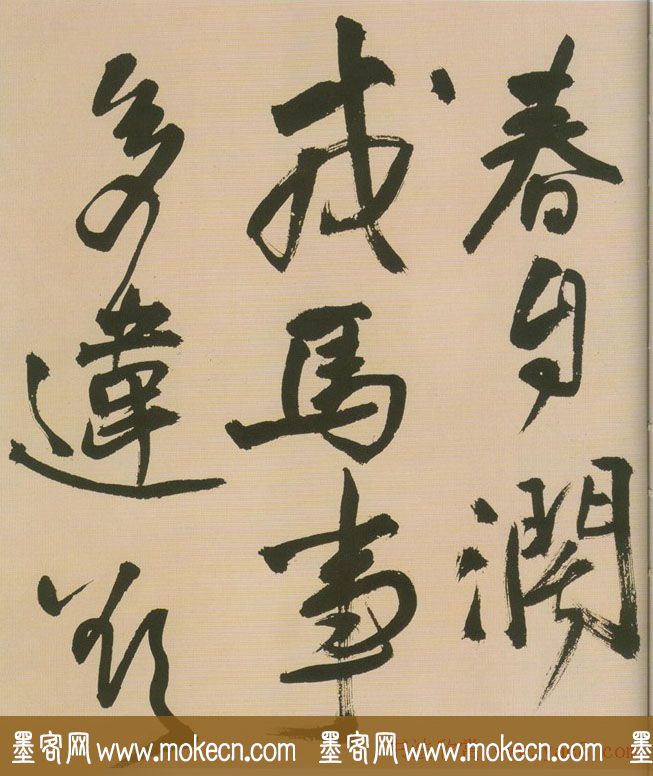 春自潤
戎馬事
多違
墨客网 www.mokecn.com 墨客网 www.mokecn.com 墨客网